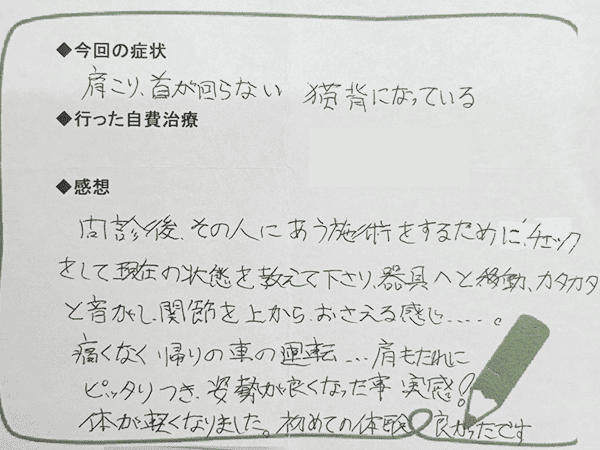 ◆今回の症状
肩こり、首が回らない 猫背になっている
◆行った自費治療
◆感想
問診後、その人にあう施術をするために、チェック
をして現在の状態を教えて下さり、器具へと移動、カタカタ
と音がし、関節を上から、おさえる感じ……。
痛くなく帰りの車の運転…肩もたれに
ピッタリつき、姿勢が良くなった事実感!
体が軽くなりました。初めての体験 良かったです